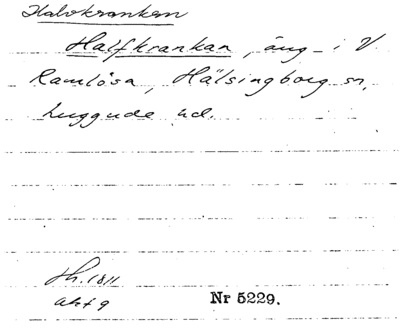 Halvkrankan
Halfkrankan, äng i V
Ramlösa, Hälsingborg sn,
Luggude hd.
Sth. 1811
akt 9
Nr 5229.